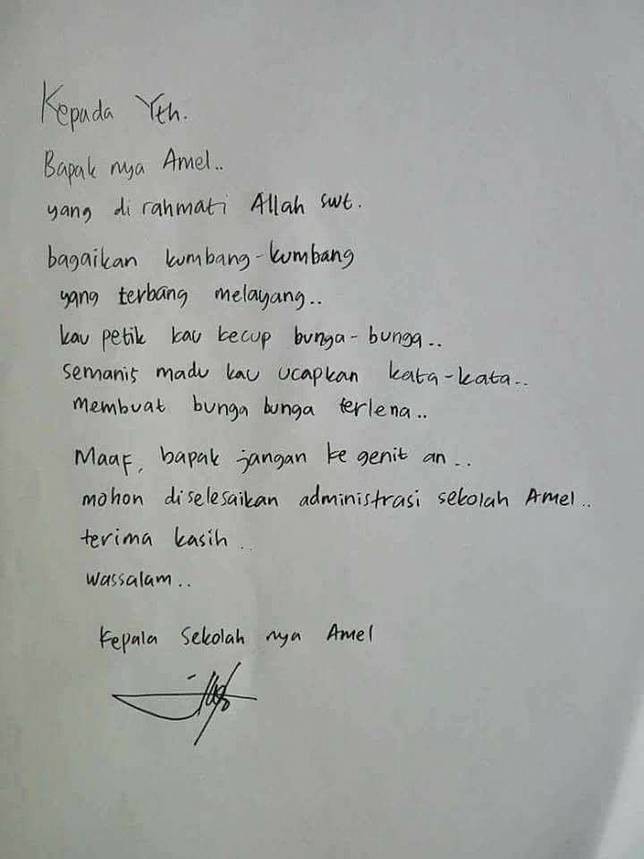 Kepada Yth.
Bapak nya Amel..
yang di rahmati Allah swt.
bagaikan kumbang-kumbang
yang terbang melayang..
kau petik kau kecup bunga-bunga..
semanis madu kau ucapkan kata-kata..
membuat bunga bunga terlena..
Maaf, bapak jangan ke genit an..
mohon diselesaikan administrasi sekolah Amel..
terima kasih..
wassalam..
Kepala Sekolah nya Amel